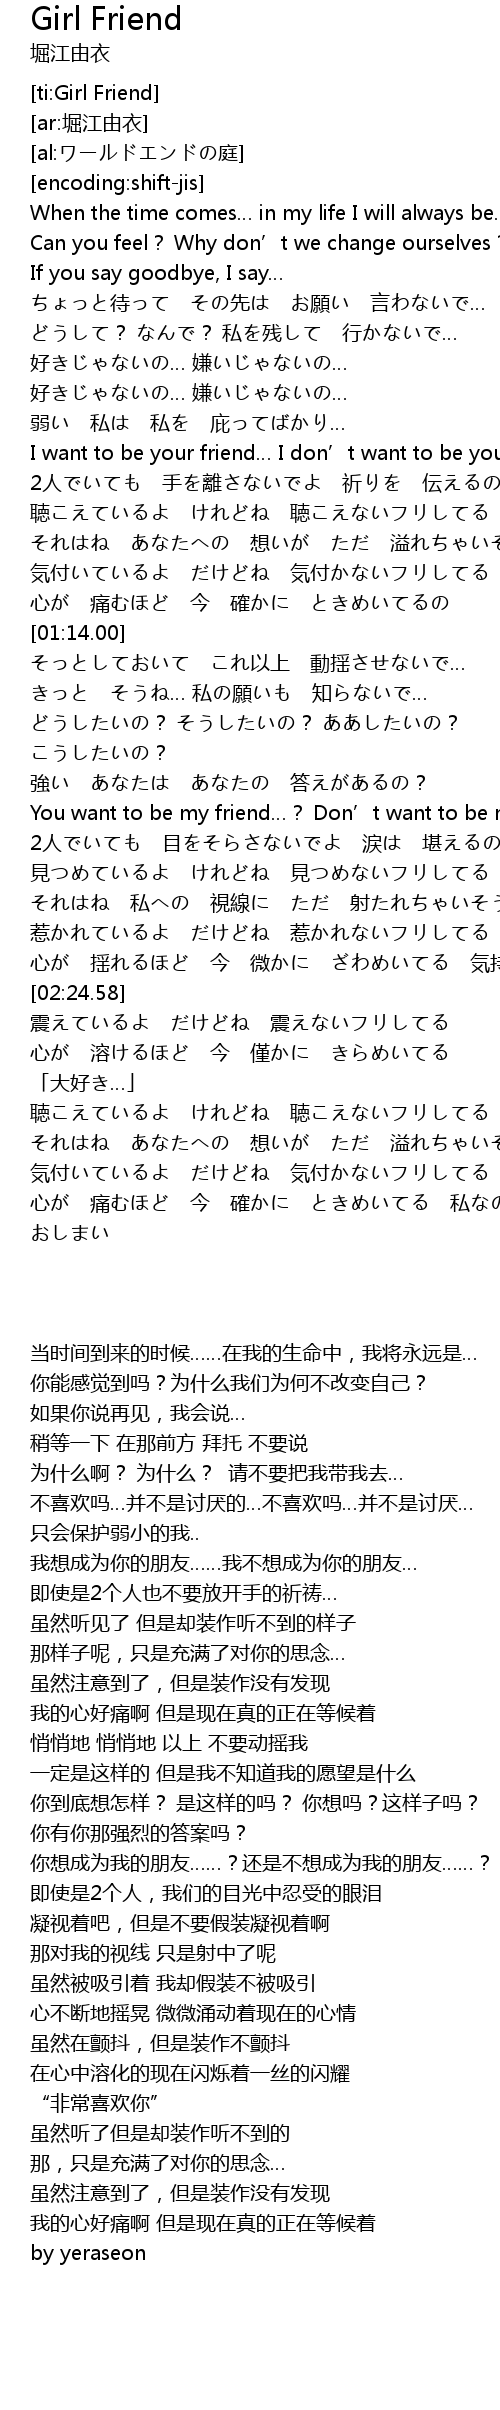 Girl Friend
堀江由衣
[ti:Girl Friend]
[ar:堀江由衣]
[al:ワールドエンドの庭]
[encoding:shift-jis]
When the time comes... in my life I will always be.
Can you feel？ Why don’t we change ourselves
If you say goodbye, I say...
ちょっと待って　その先は　お願い　言わないで...
どうして？ なんで？ 私を残して　行かないで...
好きじゃないの... 嫌いじゃないの...
好きじゃないの... 嫌いじゃないの...
弱い　私は　私を　庇ってばかり...
I want to be your friend... I don’t want to be
2人でいても　手を離さないでよ　祈りを　伝えるの
聴こえているよ　けれどね　聴こえないフリしてる
それはね　あなたへの　想いが　ただ　溢れちゃい
気付いているよ　だけどね　気付かないフリしてる
心が　痛むほど　今　確かに　ときめいてるの
[01:14.00]
そっとしておいて　これ以上　動揺させないで...
きっと　そうね... 私の願いも　知らないで...
どうしたいの？ そうしたいの？ ああしたいの？
こうしたいの？
強い　あなたは　あなたの　答えがあるの？
You want to be my friend...？ Don’t want to be
2人でいても　目をそらさないでよ　涙は　堪えるの
見つめているよ　けれどね　見つめないフリしてる
それはね　私への　視線に　ただ　射たれちゃいそう
惹かれているよ　だけどね　惹かれないフリしてる
心が　揺れるほど　今　微かに　ざわめいてる　気持
[02:24.58]
震えているよ　だけどね　震えないフリしてる
心が　溶けるほど　今　僅かに　きらめいてる
「大好き...」
聴こえているよ　けれどね　聴こえないフリしてる
それはね　あなたへの　想いが　ただ　溢れちゃい
気付いているよ　だけどね　気付かないフリしてる
心が　痛むほど　今　確かに　ときめいてる　私なの
おしまい
当时间到来的时候......在我的生命中，我将永远是...
你能感觉到吗？为什么我们为何不改变自己？
如果你说再见，我会说...
稍等一下 在那前方 拜托 不要说
为什么啊？ 为什么？ 请不要把我带我去...
不喜欢吗...并不是讨厌的...不喜欢吗...并不是讨厌...
只会保护弱小的我..
我想成为你的朋友......我不想成为你的朋友...
即使是2个人也不要放开手的祈祷...
虽然听见了 但是却装作听不到的样子
那样子呢，只是充满了对你的思念...
虽然注意到了，但是装作没有发现
我的心好痛啊 但是现在真的正在等候着
悄悄地 悄悄地 以上 不要动摇我
一定是这样的 但是我不知道我的愿望是什么
你到底想怎样？ 是这样的吗？ 你想吗？这样子吗？
你有你那强烈的答案吗？
你想成为我的朋友......？还是不想成为我的朋友......？
即使是2个人，我们的目光中忍受的眼泪
凝视着吧，但是不要假装凝视着啊
那对我的视线 只是射中了呢
虽然被吸引着 我却假装不被吸引
心不断地摇晃 微微涌动着现在的心情
虽然在颤抖，但是装作不颤抖
在心中溶化的现在闪烁着一丝的闪耀
“非常喜欢你”
虽然听了但是却装作听不到的
那，只是充满了对你的思念...
虽然注意到了，但是装作没有发现
我的心好痛啊 但是现在真的正在等候着
by yeraseon